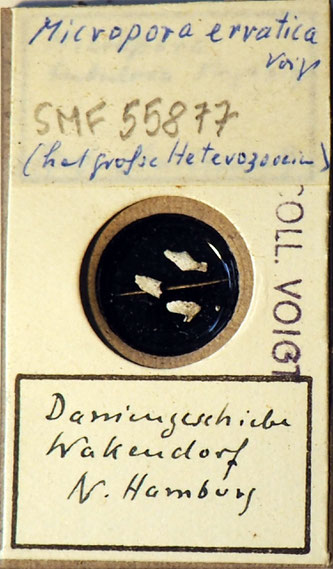 Micropora erratica
Voigt
SMF 55877
(hat große Heterozooecien)
COLL. VOIGT
Daniengeschiebe
Wakendorf
N. Hamburg